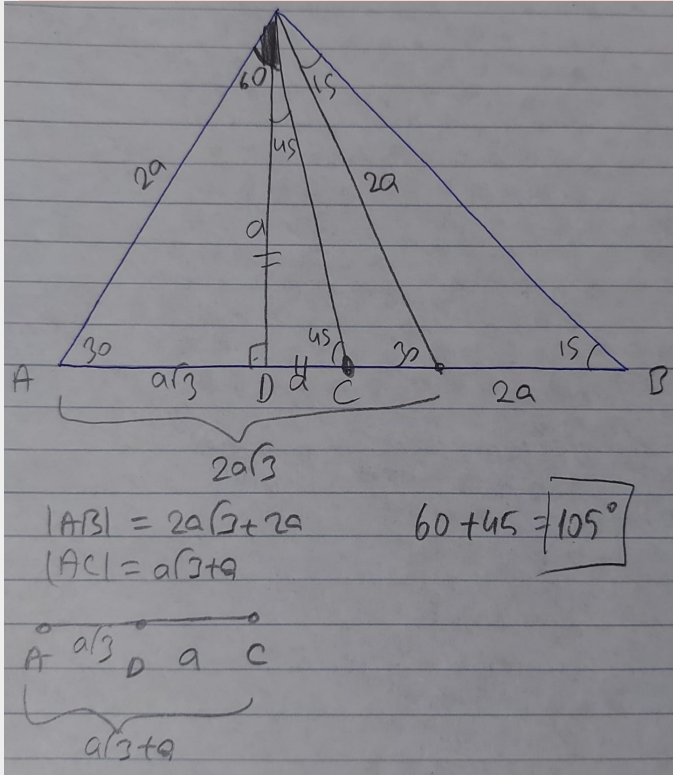 60
15
45
2a
2a
a
30
45
30
15
A
a√3
D
a
C
2a
B
2a√3
|AB| = 2a√3+2a
60+45 = 105°
|AC| = a√3+a
A
a√3
D
a
C
a√3+a